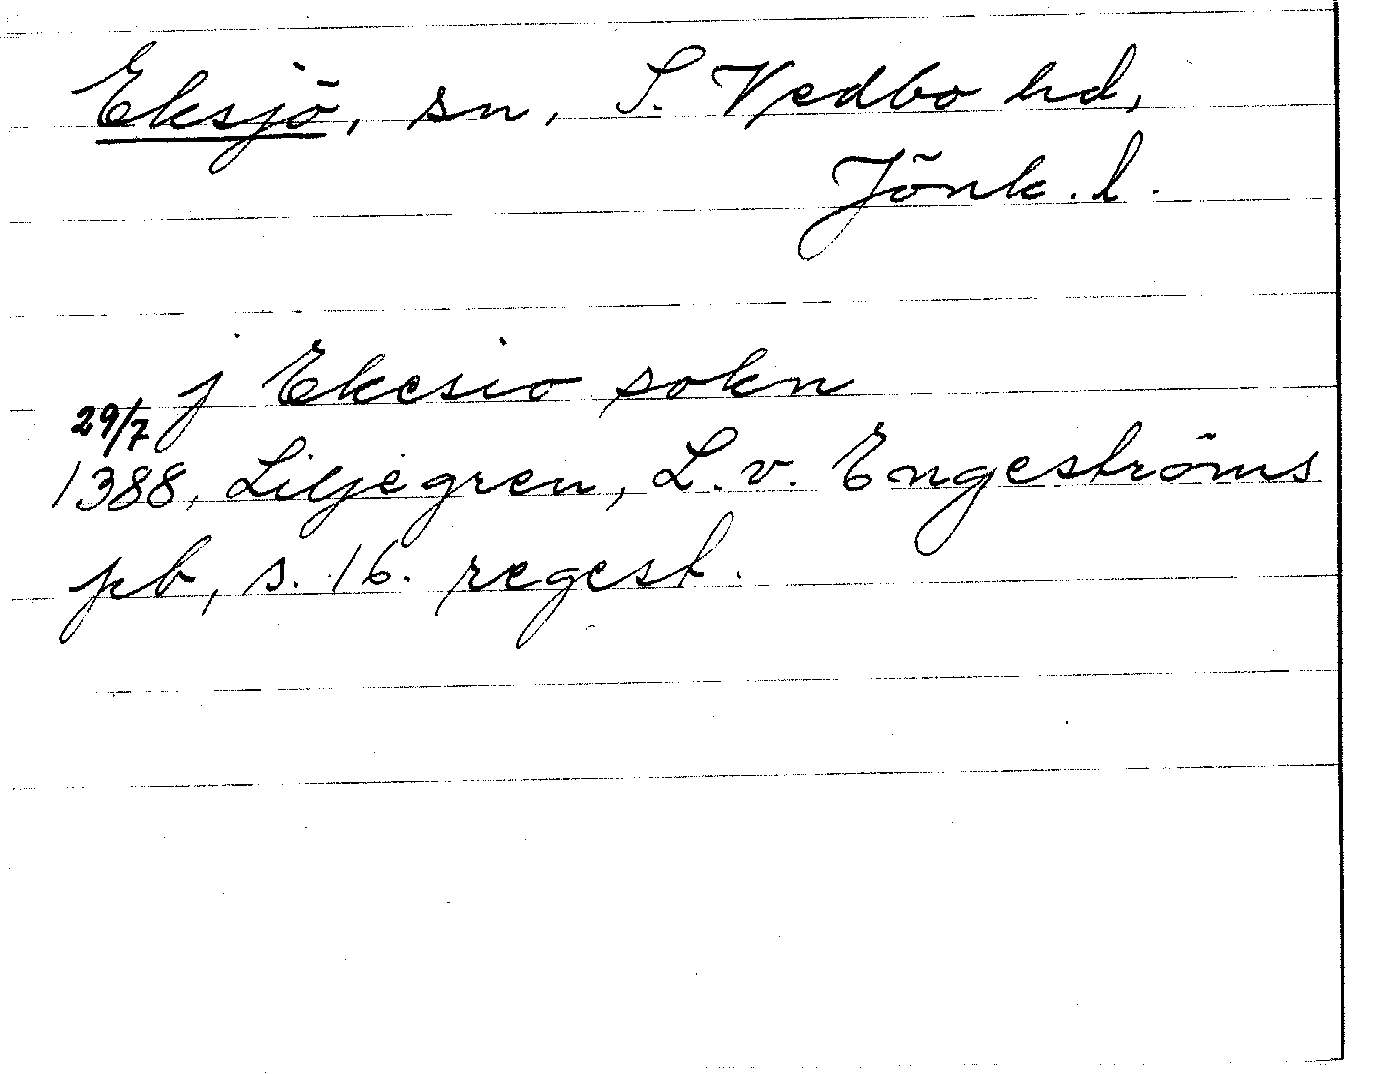 Eksjö, sn, S. Vedbo hd,
Jönk. l.
j Ekesio sokn
29/7
1388, Liljegren, L. v. Engeströms
pb, s. 16. regest.